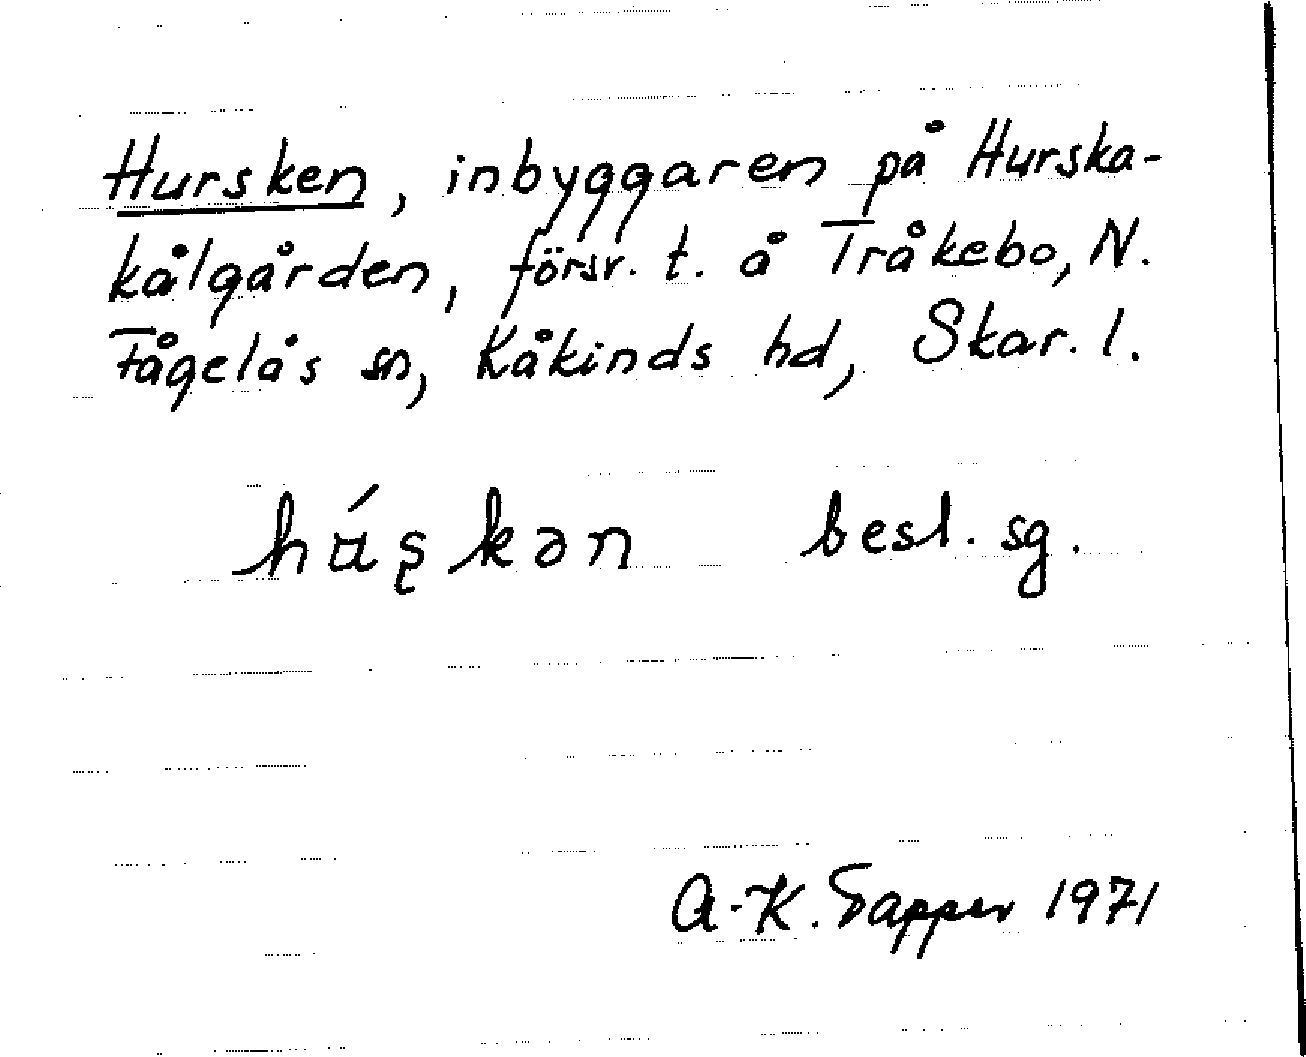 Hursken, inbyggaren på Hurska-
kålgården, försv. t. å Tråkebo, N.
Fågelås sn, Kåkinds hd, Skar. l.
hú̵ʂkən best. sg.
A-K. Sapper 1971